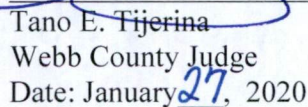 Tano E. Tijerina
Webb County Judge
Date: January 27, 2020